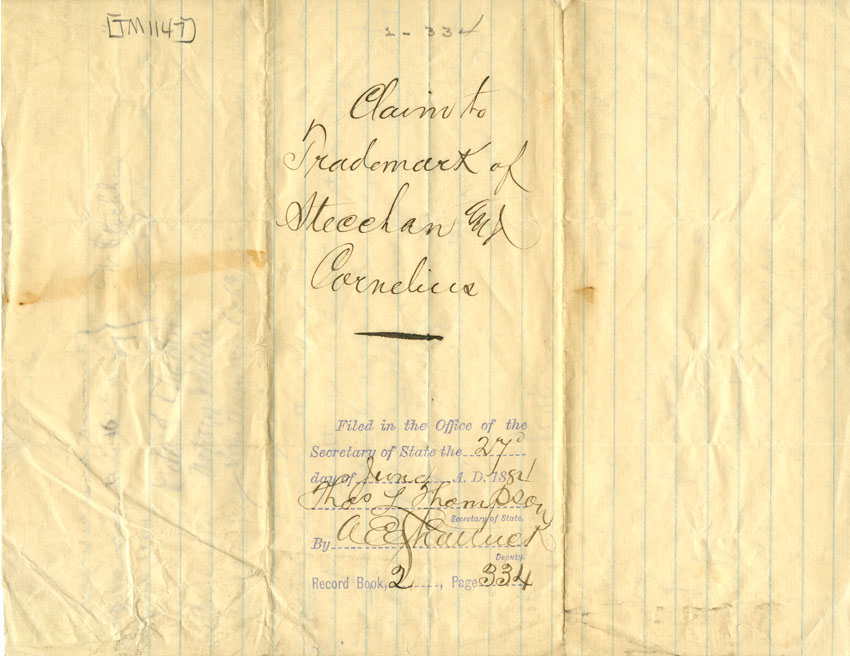 [TM1147]
2 - 334
Claim to
Trademark of
Stecchan And
Cornelius
Filed in the Office of the
Secretary of State the 27d
day of June A. D. 1884
Thos L Thompson
Secretary of State.
By A E Shattuck
Deputy.
Record Book, 2, Page 334